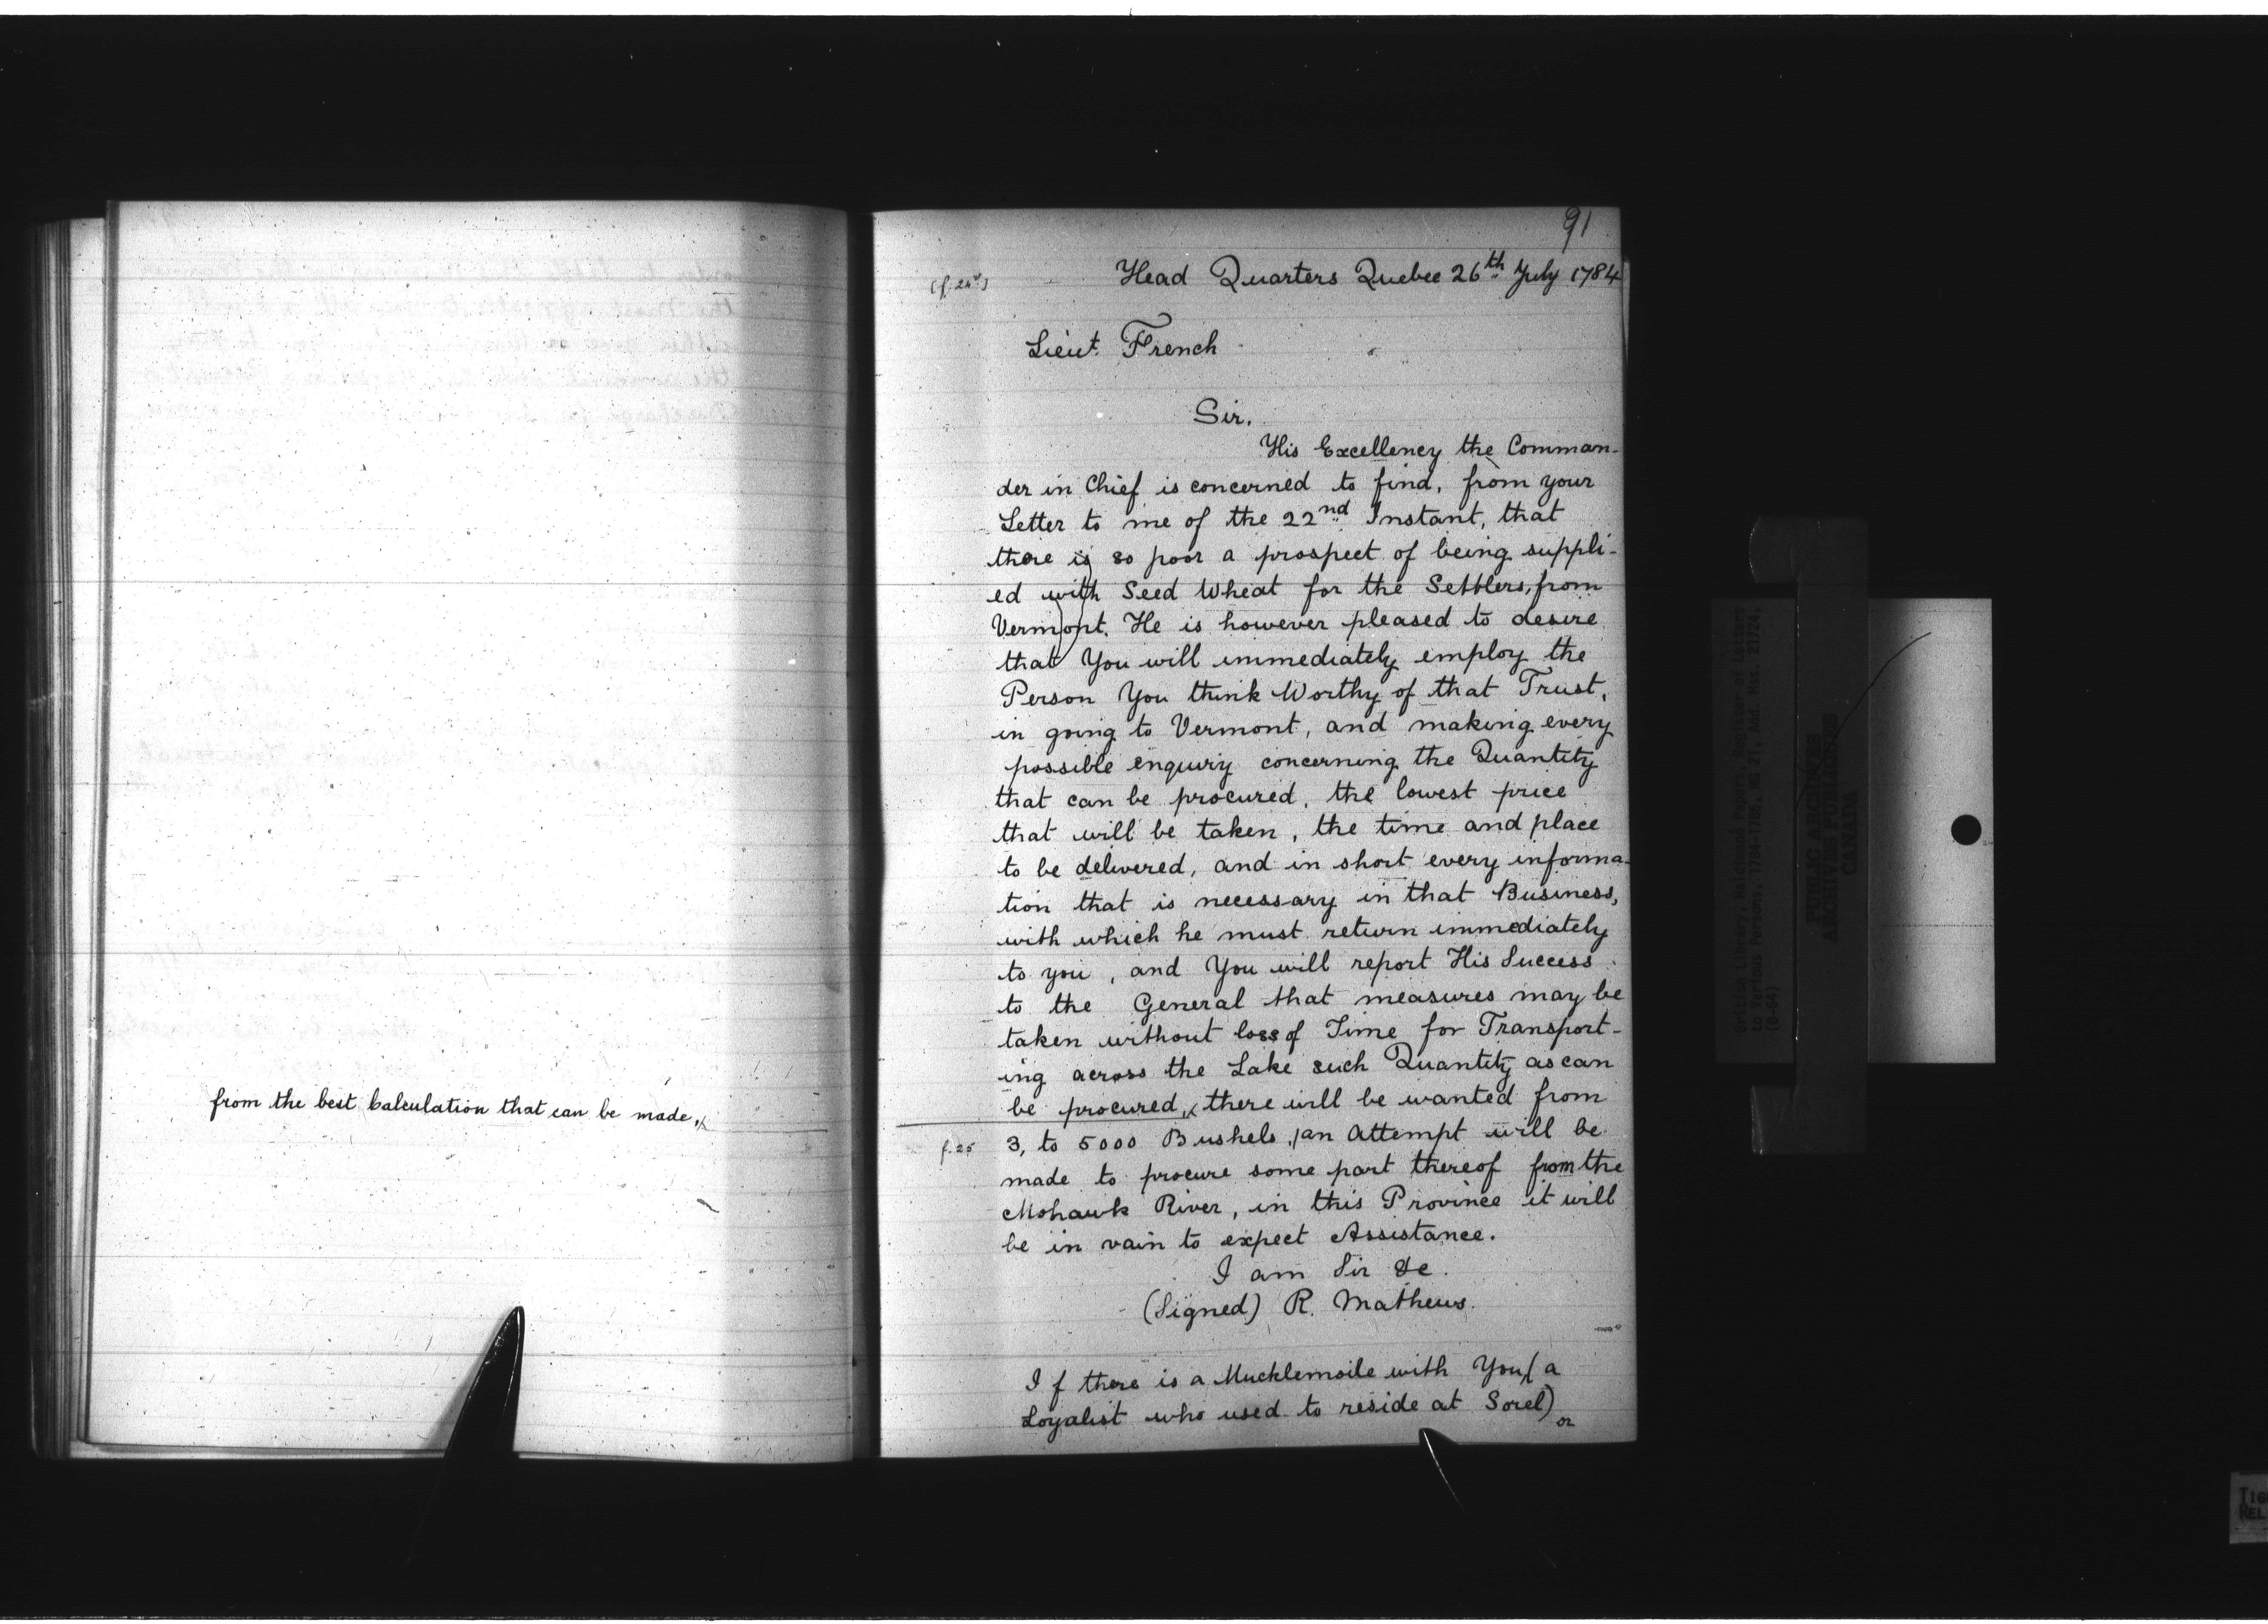 from the best Calculation that can be made,
91
Head Quarters Quebec 26th July 1784
Lieut. French
Sir,
His Excellency the Comman-
der in Chief is concerned to find, from your
Letter to me of the 22nd Instant, that
there is so poor a prospect of being suppli-
ed with Seed Wheat for the Settlers, from
Vermont. He is however pleased to desire
that You will immediately employ the
Person You think Worthy of that Trust,
in going to Vermont, and making every
possible enquiry concerning the Quantity
that can be procured, the lowest price
that will be taken, the time and place
to be delivered, and in short every informa-
tion that is necessary in that Business,
with which he must return immediately
to you, and You will report His Success
to the General that measures may be
taken without loss of Time for Transport-
ing across the Lake such Quantity as can
be procured, there will be wanted from
f. 25
3, to 5000 Bushels, an attempt will be
made to procure some part thereof from the
Mohawk River, in this Province it will
be in vain to expect Assistance.
I am Sir &c.
(Signed) R. Mathews.
If there is a Mucklemoile with You (a
Loyalist who used to reside at Sorel)
or
PUBLIC ARCHIVES
ARCHIVES PUBLIQUES
CANADA